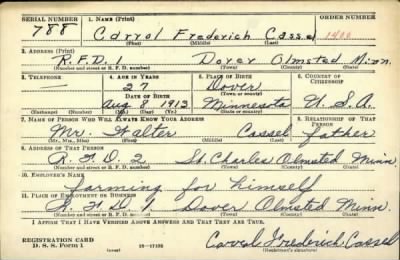 SERIAL NUMBER 1. NAME (Print) ORDER NUMBER
788 Carrol Frederich Cassel 1400
(First) (Middle) (Last)
2. ADDRESS (Print)
R.F.D. 1 Dover Olmsted Minn.
(Number and street or R. F. D. number) (Town) (County) (State)
3. TELEPHONE 4. AGE IN YEARS 5. PLACE OF BIRTH 6. COUNTRY OF CITIZENSHIP
27 Dover
DATE OF BIRTH (Town or county)
Aug 8 1913 Minnesota U.S.A.
(Exchange) (Number) (Mo.) (Day) (Yr.) (State or country)
7. NAME OF PERSON WHO WILL ALWAYS KNOW YOUR ADDRESS 8. RELATIONSHIP OF THAT PERSON
Mr. Walter Cassel father
(Mr., Mrs., Miss) (First) (Middle) (Last)
9. ADDRESS OF THAT PERSON
R.F.D. 2 St. Charles Olmsted Minn.
(Number and street or R. F. D. number) (Town) (County) (State)
10. EMPLOYER'S NAME
farming for himself
11. PLACE OF EMPLOYMENT OR BUSINESS
R.F.D. 1 Dover Olmsted Minn.
(Number and street or R. F. D. number) (Town) (County) (State)
I AFFIRM THAT I HAVE VERIFIED ABOVE ANSWERS AND THAT THEY ARE TRUE.
REGISTRATION CARD
D. S. S. Form 1 (over) 16—17105 Carrol Frederich Cassel
(Registrant's signature)